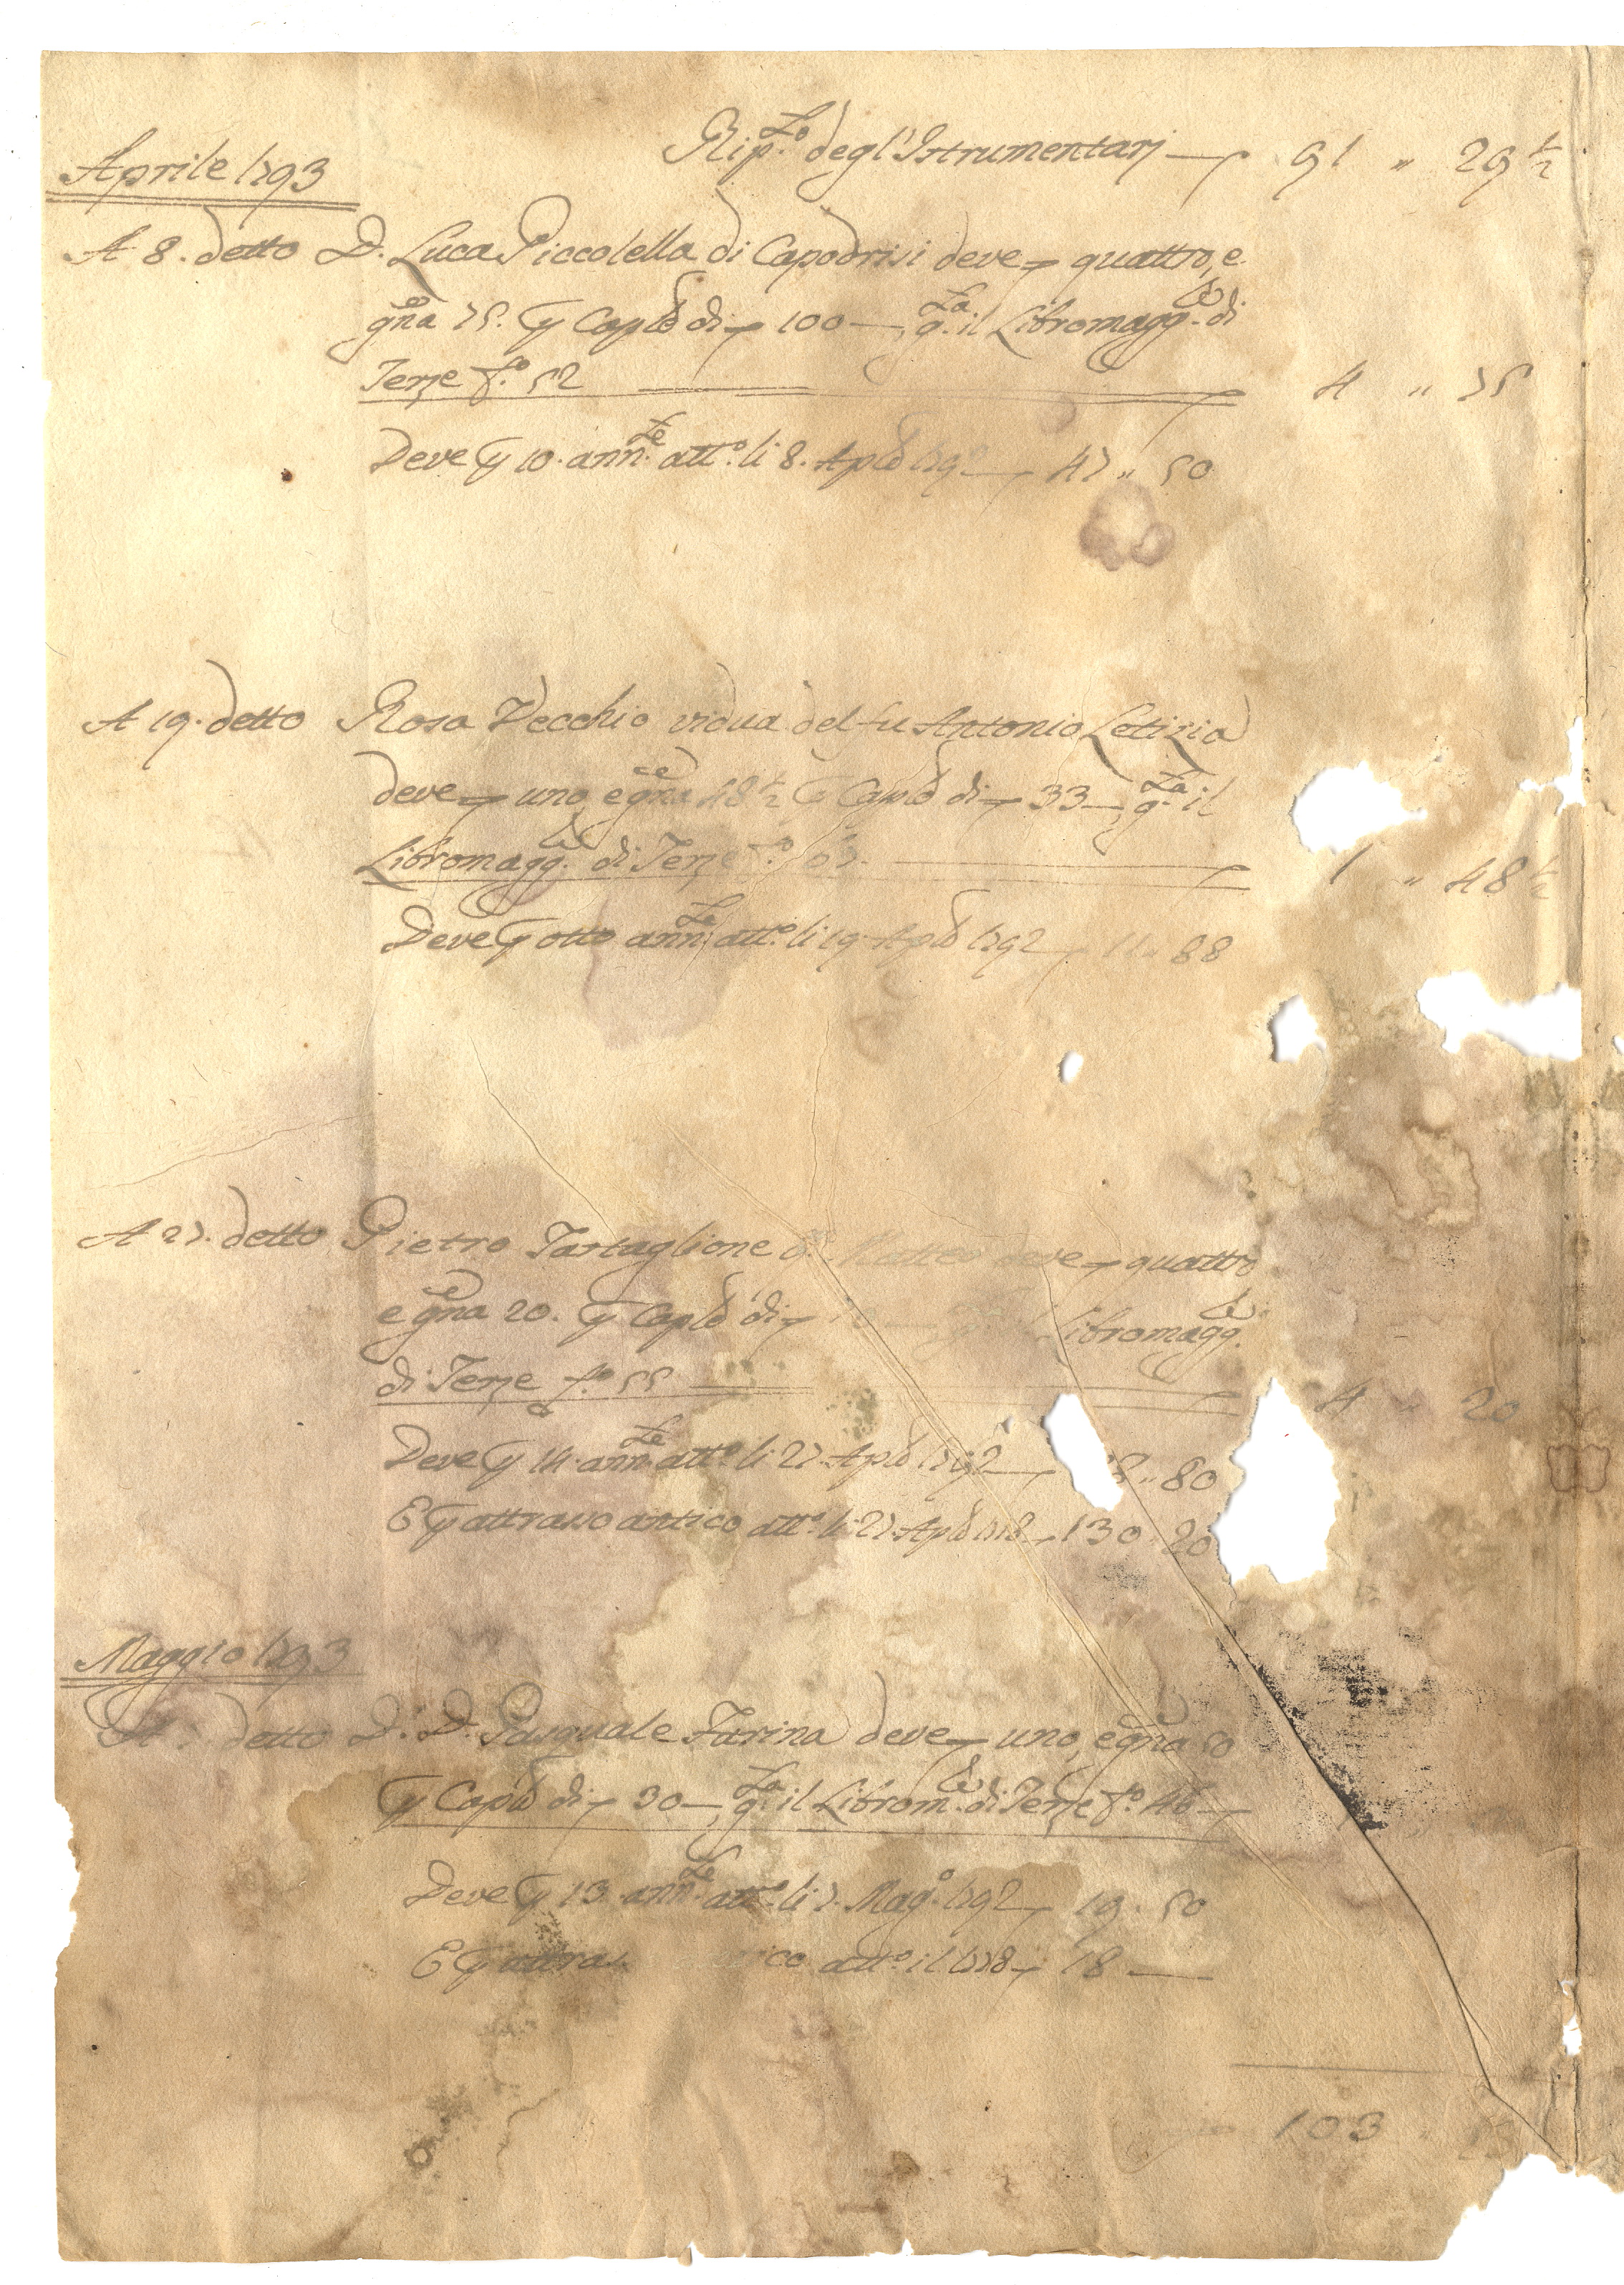 Rip.to degl'Istrumentarj — 91 „ 29 ½
Aprile 1793
A 8. detto D. Luca Piccolella di Capodrisi deve quattro, e
gna 75. p Caple di 100 —, q.ta il Libromagg.re di
Terze f.o 52 4 „ 75
Deve p 10. ann.te att.o li 8. Aple 1792 — 47 „ 50
A 19. detto Rosa Vecchio vidua del fu Antonio Letizia
deve uno, e gna 48 ½ p Caple di 33 —, q.ta il
Libromagg.re di Terze 1 „ 48 ½
Deve p otto ann.te att.o li 19. Aple 1792 11 „ 88
A 27. detto Pietro Tartaglione Matteo deve quattro
e gna 20. p Caple di Libromagg.re
di Terze f.o 55 4 „ 20
Deve p 14. ann.te att.o li 27. Aple 1792 — „ 80
E p attrasso antico att.o li 27. Aple 130 „ 20
Maggio 1793
A 7 detto D. D. Pasquale Farina deve uno, e gna 50
p Caple di 30 —, q.ta il Librom.re di Terze f.o 46
Deve p 13. ann.te att.o li 7. Mag.o 1792 19 . 50
E p att.o il 1778 18 —
103